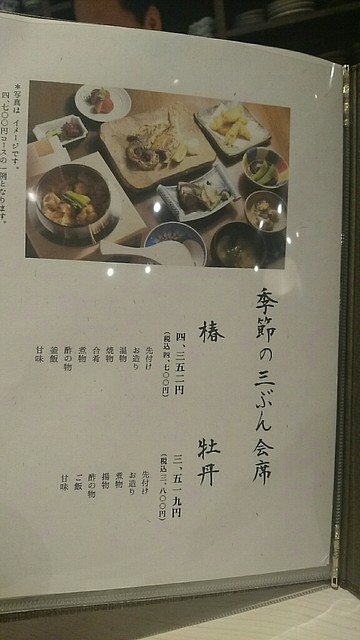 *写真は イメージです。
四、七〇〇円コースの一例となります。
季節の三ぶん会席
椿
四、三五二円
(税込四、七〇〇円)
先付け
お造り
温物
焼物
合肴
煮物
酢の物
釜飯
甘味
牡丹
三、五一九円
(税込三、八〇〇円)
先付け
お造り
煮物
揚物
酢の物
ご飯
甘味